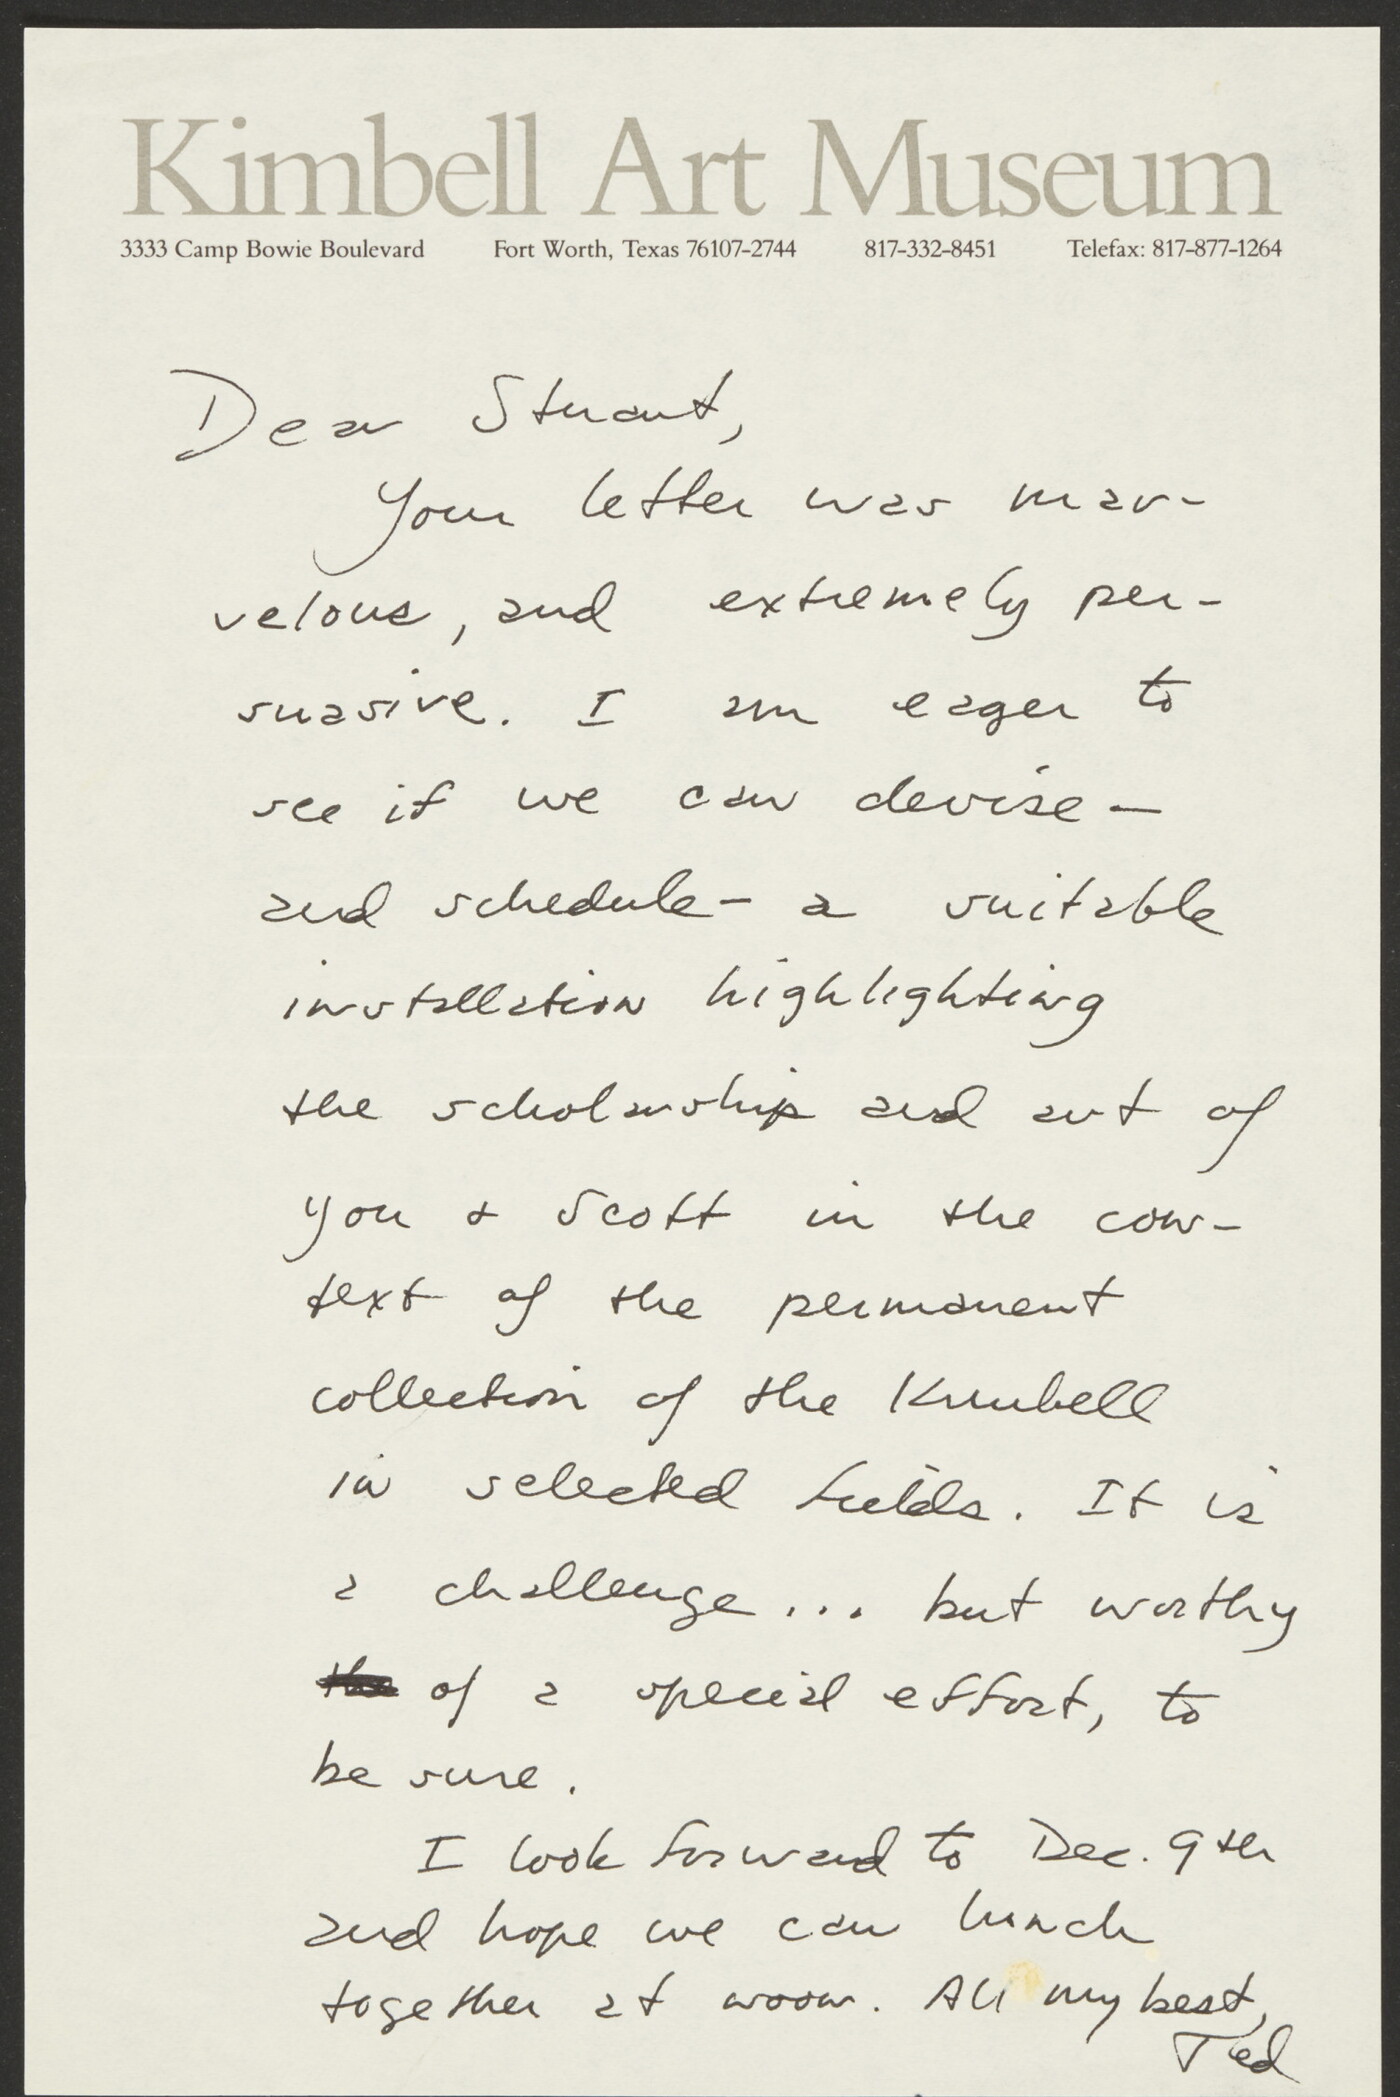 Kimbell Art Museum
3333 Camp Bowie Boulevard Fort Worth, Texas 76107-2744 817-332-8451 Telefax: 817-877-1264
Dear Stuart,
Your letter was mar-
velous, and extremely per-
suasive. I am eager to
see if we can devise —
and schedule — a suitable
installation highlighting
the scholarship and art of
you & Scott in the con-
text of the permanent
collection of the Kimbell
in selected fields. It is
a challenge... but worthy
of a special effort, to
be sure.
I look forward to Dec. 9th
and hope we can lunch
together at noon. All my best,
Ted